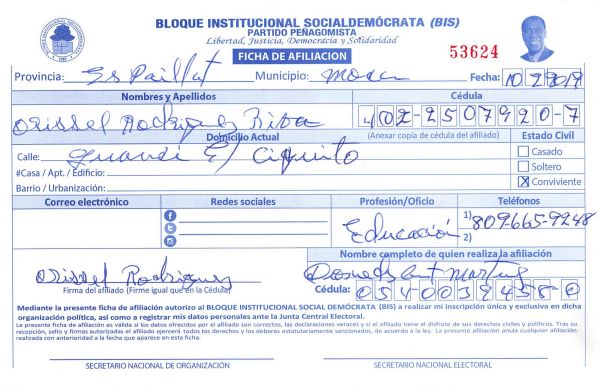 BLOQUE INSTITUCIONAL SOCIALDEMÓCRATA (BIS)
PARTIDO PEÑAGOMISTA
Libertad, Justicia, Democracia y Solidaridad
FICHA DE AFILIACION
53624
Provincia: Espaillat Municipio: Moca Fecha: 10 2 2019
Nombres y Apellidos Cédula
Orissel Rodriguez 402-2507920-7
Domicilio Actual (Anexar copia de cédula del afiliado) Estado Civil
Calle: El Ciquito Casado
#Casa / Apt. / Edificio: Soltero
Barrio / Urbanización: X Conviviente
Correo electrónico Redes sociales Profesión/Oficio Teléfonos
Educación 1) 809-665-9248
2)
Nombre completo de quien realiza la afiliación
Orissel Rodriguez
Firma del afiliado (Firme igual que en la Cédula) Cédula: 05400394580
Mediante la presente ficha de afiliación autorizo al BLOQUE INSTITUCIONAL SOCIAL DEMÓCRATA (BIS) a realizar mi inscripción única y exclusiva en dicha
organización política, así como a registrar mis datos personales ante la Junta Central Electoral.
La presente ficha de afiliación es válida a los datos ofrecidos por el afiliado son correctos, las declaraciones veraces y si el afiliado tiene el disfrute de sus derechos civiles y políticos. Tras su
recepción, sello y firmas autorizadas el afiliado ejercerá todos los derechos y los deberes estatutariamente sancionados, de acuerdo a la ley. La presente afiliación anula cualquier afiliación
realizada con anterioridad a la fecha que aparece en esta ficha.
SECRETARIO NACIONAL DE ORGANIZACIÓN SECRETARIO NACIONAL ELECTORAL